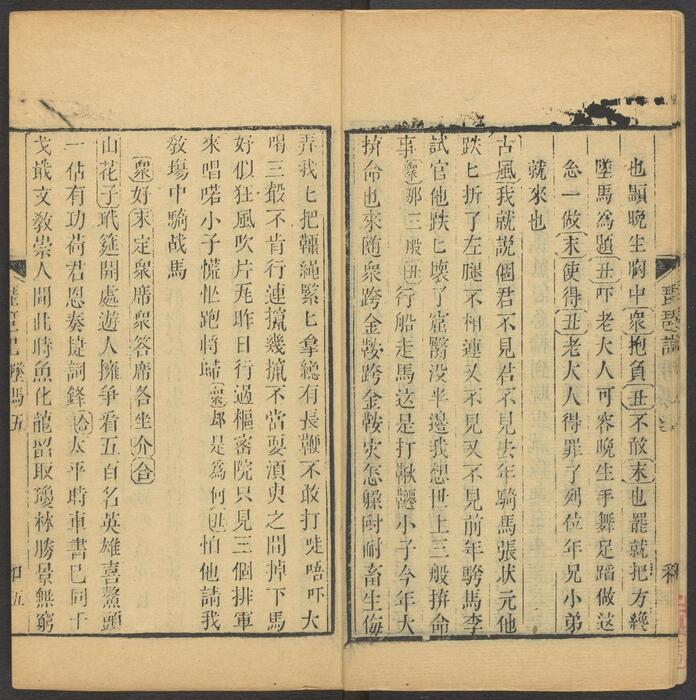 也顯晚生胸中衆抱負丑不敢末也罷就把方纔
墜馬爲題丑吓老大人可容晚生手舞足蹈做這
一做末使得丑老大人得罪了列位年兄小弟
就來也
古風我就說個君不見君不見去年騎馬張狀元他
跌匕折了左腿不相連又不見又不見前年騎馬李
試官他跌匕壞了窟臀沒半邊我想世上三般拚命
事衆那三般丑行船走馬這是打鞦韆小子今年大
拚命也來隨衆跨金鞍跨金鞍災怎躲耐畜生侮
弄我匕把韁繩緊匕拿縂有長鞭不敢打唗唔吓大
喝三聲不肯行連攛幾攛不當耍湏臾之間掉下馬
好似狂風吹片瓦昨日行過樞密院只見三個排軍
來唱喏小子慌忙跑將歸衆郍是為何丑怕他請我
敎塲中騎战馬
衆好末定衆席衆答席各坐介合
山花子玳筵開處遊人擁爭看五百名英雄喜鰲頭
一佔有功荷君恩奏捷詞鋒合太平時車書已同干
戈戢文敎崇人間此時魚化龍留取瓊林勝景無窮
琵琶記 墜馬五
五